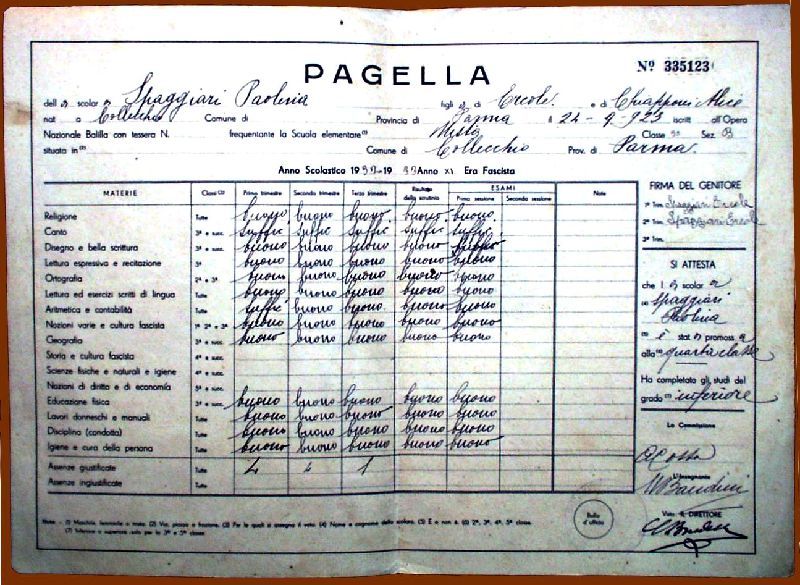 PAGELLA
Nº 335123
dell a scolar a Spaggiari Paolina figli a di Ercole e di Chiapponi Alice
nat a a Collecchio Comune di Provincia di Parma il 24-9-923 iscritt all'Opera
Nazionale Balilla con tessera N. frequentante la Scuola elementare Mista Classe 3ª Sez. B
situata in Comune di Collecchio Prov. di Parma.
Anno Scolastico 19 -19 Anno XI Era Fascista
MATERIE Classi Primo trimestre Secondo trimestre Terzo trimestre Risultato dello scrutinio ESAMI Prima sessione Seconda sessione Note
Religione Tutte buono buono buono buono buono
Canto 3ª e succ. suffic suffic suffic suffic suffic
Disegno e bella scrittura 3ª e succ. buono buono buono buono
Lettura espressiva e recitazione 3ª buono buono buono buono buono
Ortografia 2ª e 3ª buono buono buono buono buono
Lettura ed esercizi scritti di lingua Tutte buono buono buono buono buono
Aritmetica e contabilità Tutte suffic buono buono buono buono
Nozioni varie e cultura fascista 1ª 2ª e 3ª buono buono buono buono buono
Geografia 3ª e succ. buono buono buono buono buono
Storia e cultura fascista 4ª e succ.
Scienze fisiche e naturali e igiene 4ª e succ.
Nozioni di diritto e di economia 5ª e succ.
Educazione fisica 3ª e succ. buono buono buono buono buono
Lavori donneschi e manuali Tutte buono buono buono buono buono
Disciplina (condotta) Tutte buono buono buono buono buono
Igiene e cura della persona Tutte buono buono buono buono buono
Assenze giustificate Tutte 4 4 1
Assenze ingiustificate Tutte
FIRMA DEL GENITORE
1º Trim. Spaggiari Ercole
2º Trim. Spaggiari Ercole
3º Trim.
SI ATTESTA
che l a scolar a
Spaggiari
Paolina
è stat a promossa
alla quarta classe
Ha completato gli studi del
grado inferiore
La Commissione
L'Insegnante
Visto: IL DIRETTORE
Bollo d'ufficio
Note - (1) Maschile femminile o mista. (2) Via, piazza o frazione. (3) Per le quali si assegna il voto. (4) Nome e cognome dello scolaro. (5) È o non è. (6) 2ª, 3ª, 4ª, 5ª classe.
(7) Inferiore o superiore solo per la 3ª e 5ª classe.